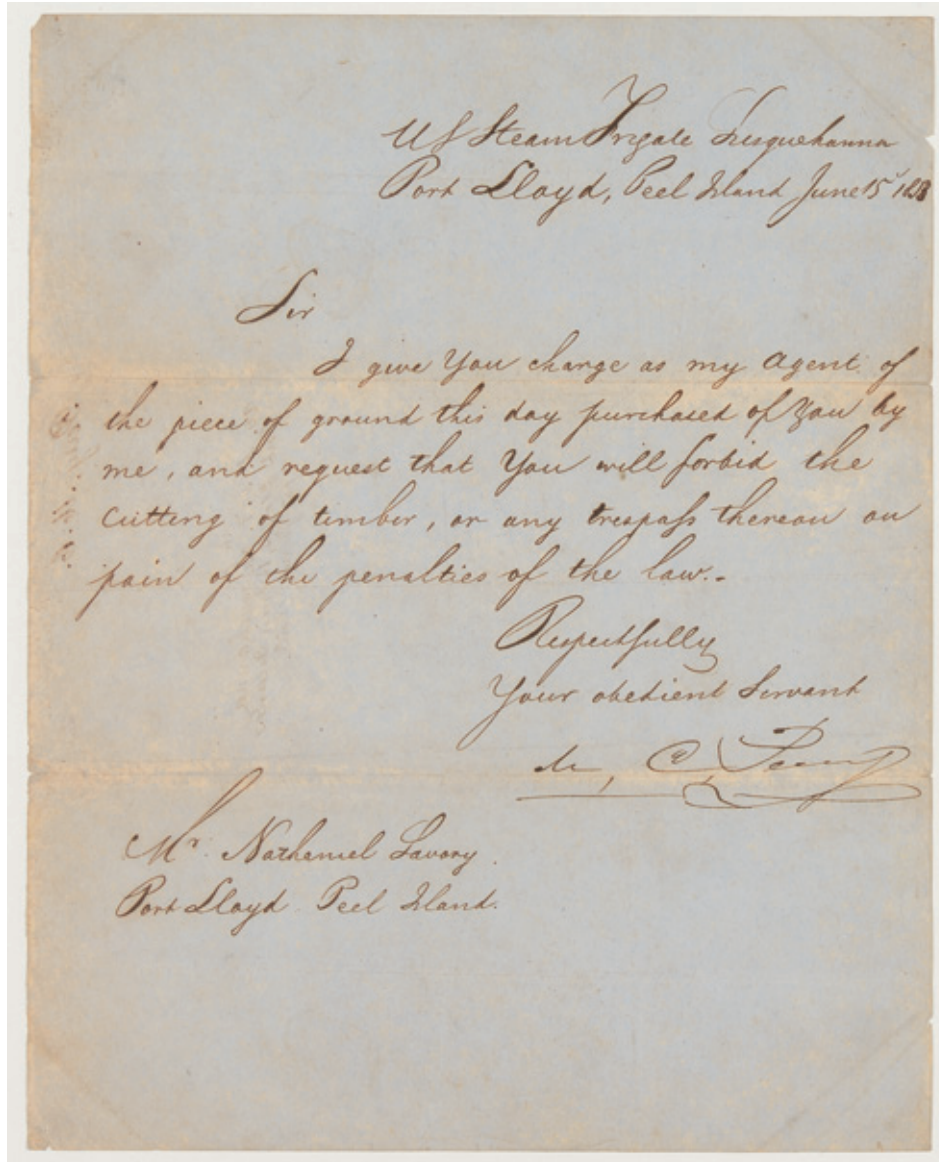 US Steam Frigate Susquehanna
Port Lloyd, Peel Island June 15 1853
Sir
I give You charge as my Agent of
the piece of ground this day purchased of You by
me, and request that You will forbid the
Cutting of timber, or any trespass thereon on
pain of the penalties of the law.-
Respectfully
Your obedient Servant
M, C, Perry
Mr. Nathaniel Savory
Port Lloyd Peel Island.